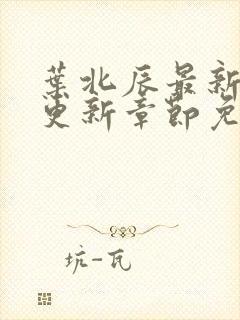 葉北辰最新
更新章節免
坑-瓦